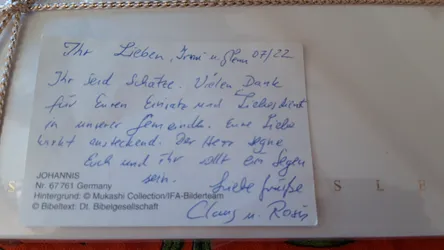 Ihr Lieben, Irmi u. Glenn 07/22
Ihr seid Schätze. Vielen Dank
für Euren Einsatz und Liebesdienst
in unserer Gemeinde. Eure Liebe
wirkt ansteckend. Der Herr segne
Euch und ihr sollt ein Segen
sein.
Liebe Grüße
Claus u.
JOHANNIS
Nr. 67761 Germany
Hintergrund: © Mukashi Collection/IFA-Bilderteam
© Bibeltext: Dt. Bibelgesellschaft
S L E